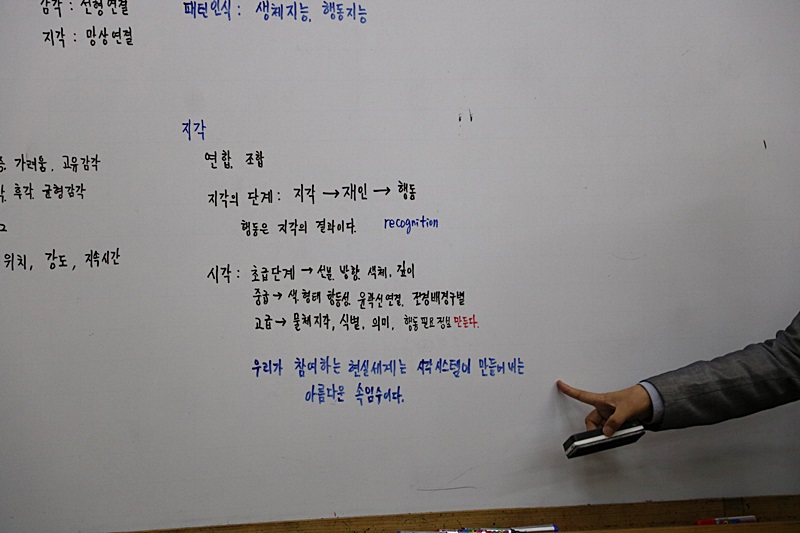 감각 : 선형연결
지각 : 망상연결
패턴인식 : 생체지능, 행동지능
가려움, 고유감각
후각, 균형감각
위치, 강도, 지속시간
지각
연합, 조합
지각의 단계 : 지각 → 재인 → 행동
행동은 지각의 결과이다. recognition
시각 : 초급단계 → 선분, 방향, 색체, 깊이
중급 → 색, 형태 항등성, 윤곽선연결, 전경배경구별
고급 → 물체지각, 식별, 의미, 행동필요정보 만든다.
우리가 참여하는 현실세계는 시각시스템이 만들어내는
아름다운 속임수이다.